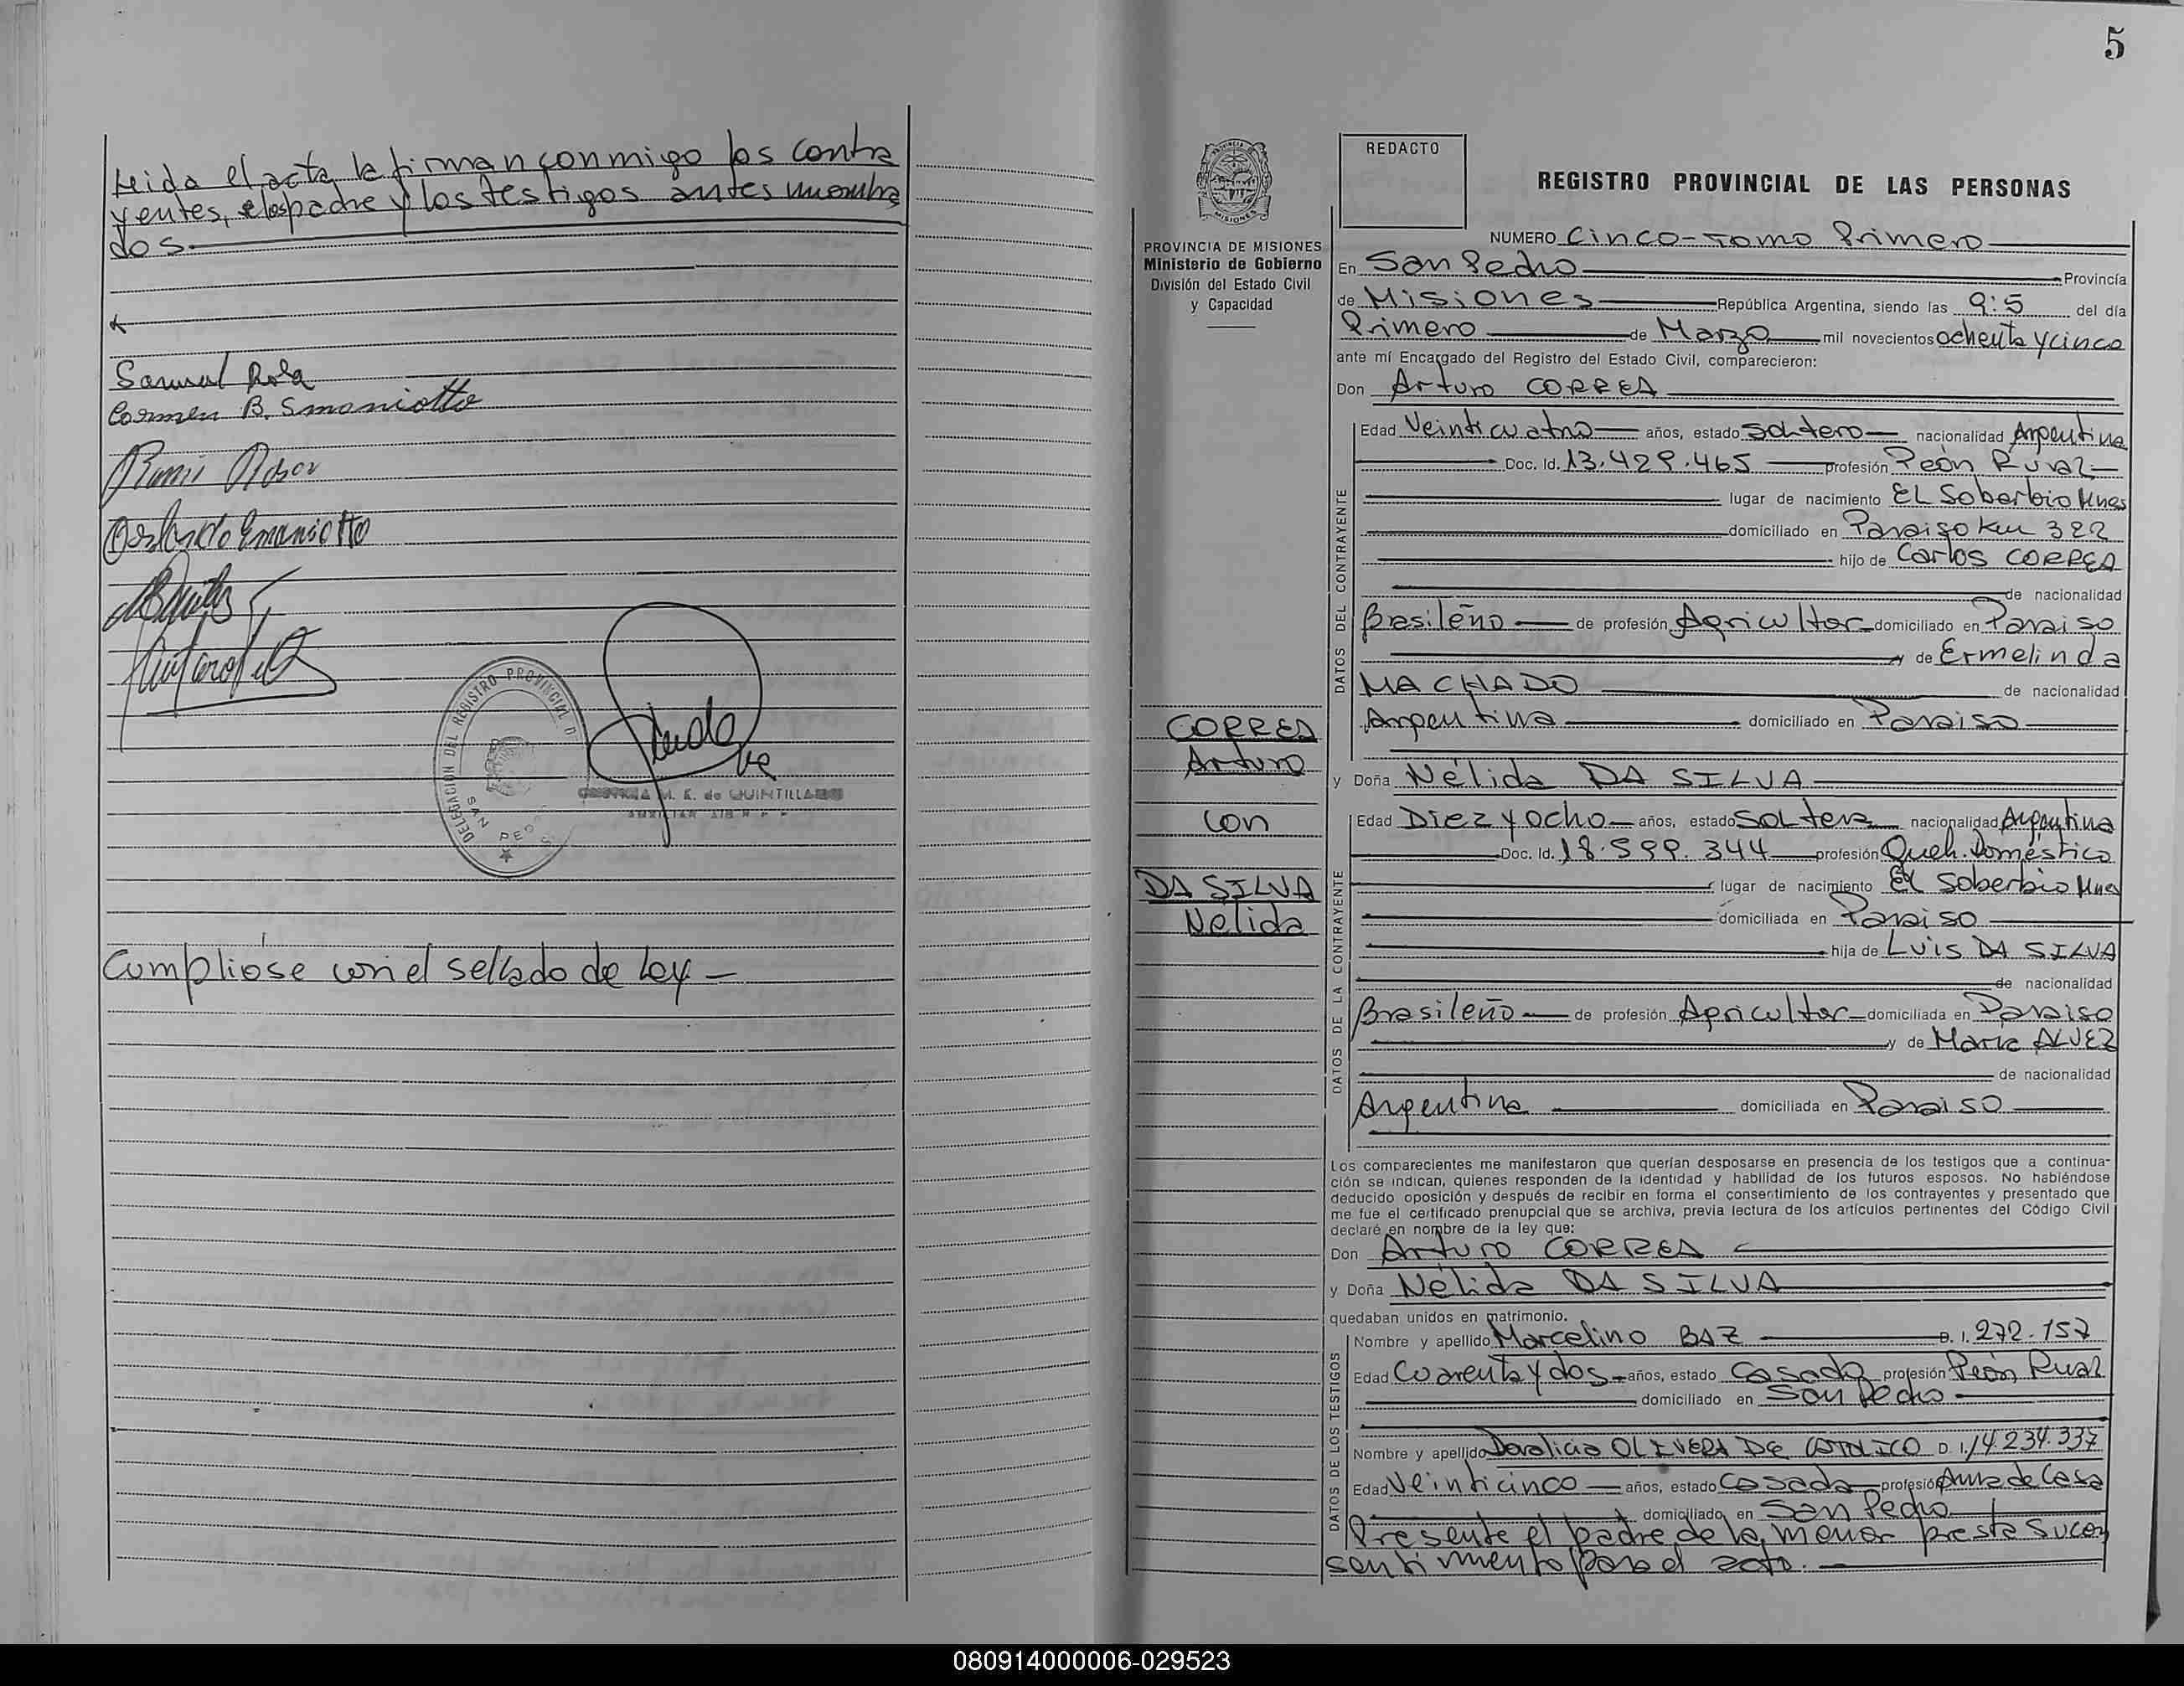 Leida el acta la firman conmigo los contra
yentes, los padre y los testigos antes nombra
dos
Samuel Rosa
Carmen B. Smaniotto
Orlando Smaniotto
DELEGACION DEL REGISTRO PROVINCIAL D
SAN PEDRO
M. E. de QUINTILLA
Cumpliose con el sellado de Ley
5
PROVINCIA DE MISIONES
Ministerio de Gobierno
División del Estado Civil
y Capacidad
CORREA
Arturo
con
DA SILVA
Nelida
REDACTO
REGISTRO PROVINCIAL DE LAS PERSONAS
NUMERO Cinco - Tomo Primero
En San Pedro Provincia
de Misiones República Argentina, siendo las 9:5 del día
Primero de Marzo mil novecientos ochenta y cinco
ante mí Encargado del Registro del Estado Civil, comparecieron:
Don Arturo CORREA
DATOS DEL CONTRAYENTE
Edad Veinticuatro años, estado Soltero nacionalidad Argentina
Doc. Id. 13.429.465 profesión Peón Rural
lugar de nacimiento EL Soberbio Mnes
domiciliado en Paraiso Km 322
hijo de Carlos CORREA
de nacionalidad
Brasileño de profesión Agricultor domiciliado en Paraiso
y de Ermelinda
MACHADO de nacionalidad
Argentina domiciliado en Paraiso
y Doña Nélida DA SILVA
DATOS DE LA CONTRAYENTE
Edad Diez y ocho años, estado Soltera nacionalidad Argentina
Doc. Id. 18.599.344 profesión Queh. Doméstico
lugar de nacimiento EL Soberbio Mnes
domiciliada en Paraiso
hija de Luis DA SILVA
de nacionalidad
Brasileño de profesión Agricultor domiciliada en Paraiso
y de Maria ALVEZ
de nacionalidad
Argentina domiciliada en Paraiso
Los comparecientes me manifestaron que querían desposarse en presencia de los testigos que a continua-
ción se indican, quienes responden de la identidad y habilidad de los futuros esposos. No habiéndose
deducido oposición y después de recibir en forma el consentimiento de los contrayentes y presentado que
me fue el certificado prenupcial que se archiva, previa lectura de los artículos pertinentes del Código Civil
declaré en nombre de la ley que:
Don Arturo CORREA
y Doña Nélida DA SILVA
quedaban unidos en matrimonio.
DATOS DE LOS TESTIGOS
Nombre y apellido Marcelino BAZ D. I. 272.157
Edad Cuarenta y dos años, estado Casado profesión Peón Rural
domiciliado en San Pedro
Nombre y apellido OLIVERA DE D. I. 14.234.337
Edad Veinticinco años, estado Casada profesión Ama de Casa
domiciliado en San Pedro
Presente el padre de la menor presta su con
sentimiento para el acto.
080914000006-029523